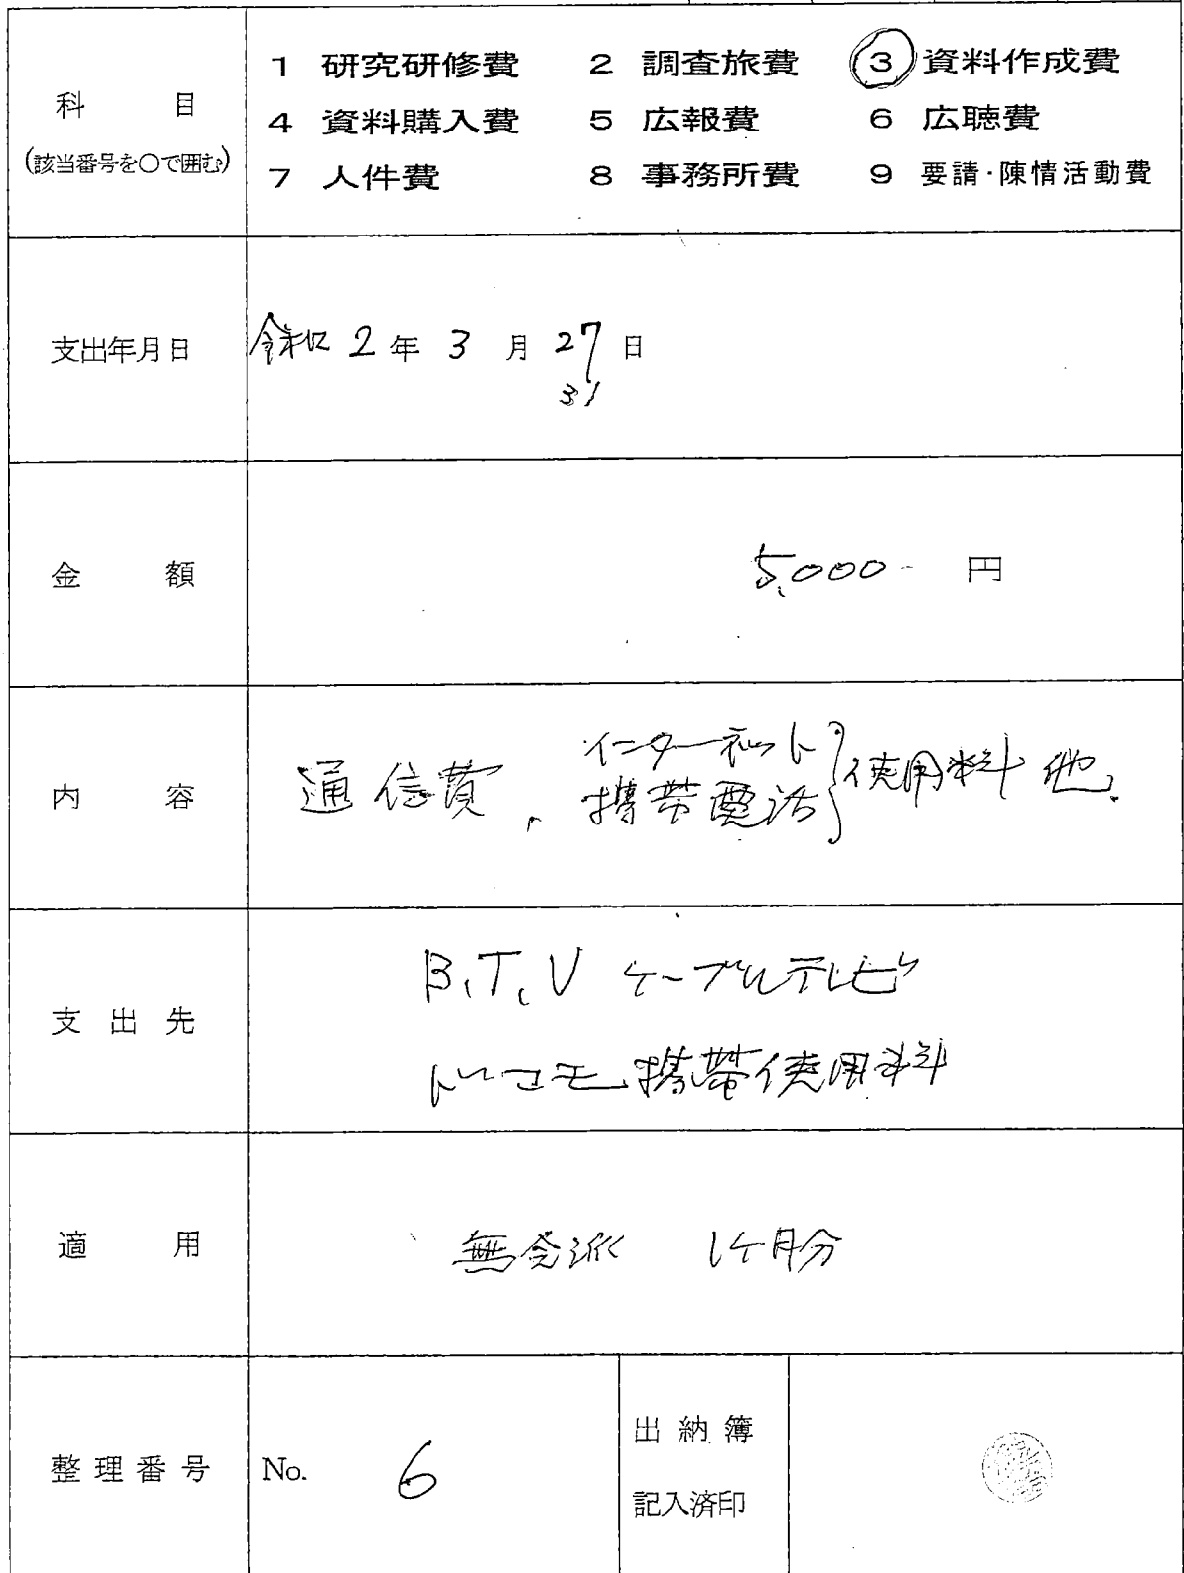 科目
(該当番号を○で囲む)
1 研究研修費 2 調査旅費 3 資料作成費
4 資料購入費 5 広報費 6 広聴費
7 人件費 8 事務所費 9 要請・陳情活動費
支出年月日 令和 2 年 3 月 27 日
31
金額 5,000- 円
内容 通信費、インターネット 携帯電話 } 使用料 他.
支出先 B.T.V ケーブルテレビ
ドコモ携帯使用料
適用 無会派 1ケ月分
整理番号 No. 6
出納簿
記入済印